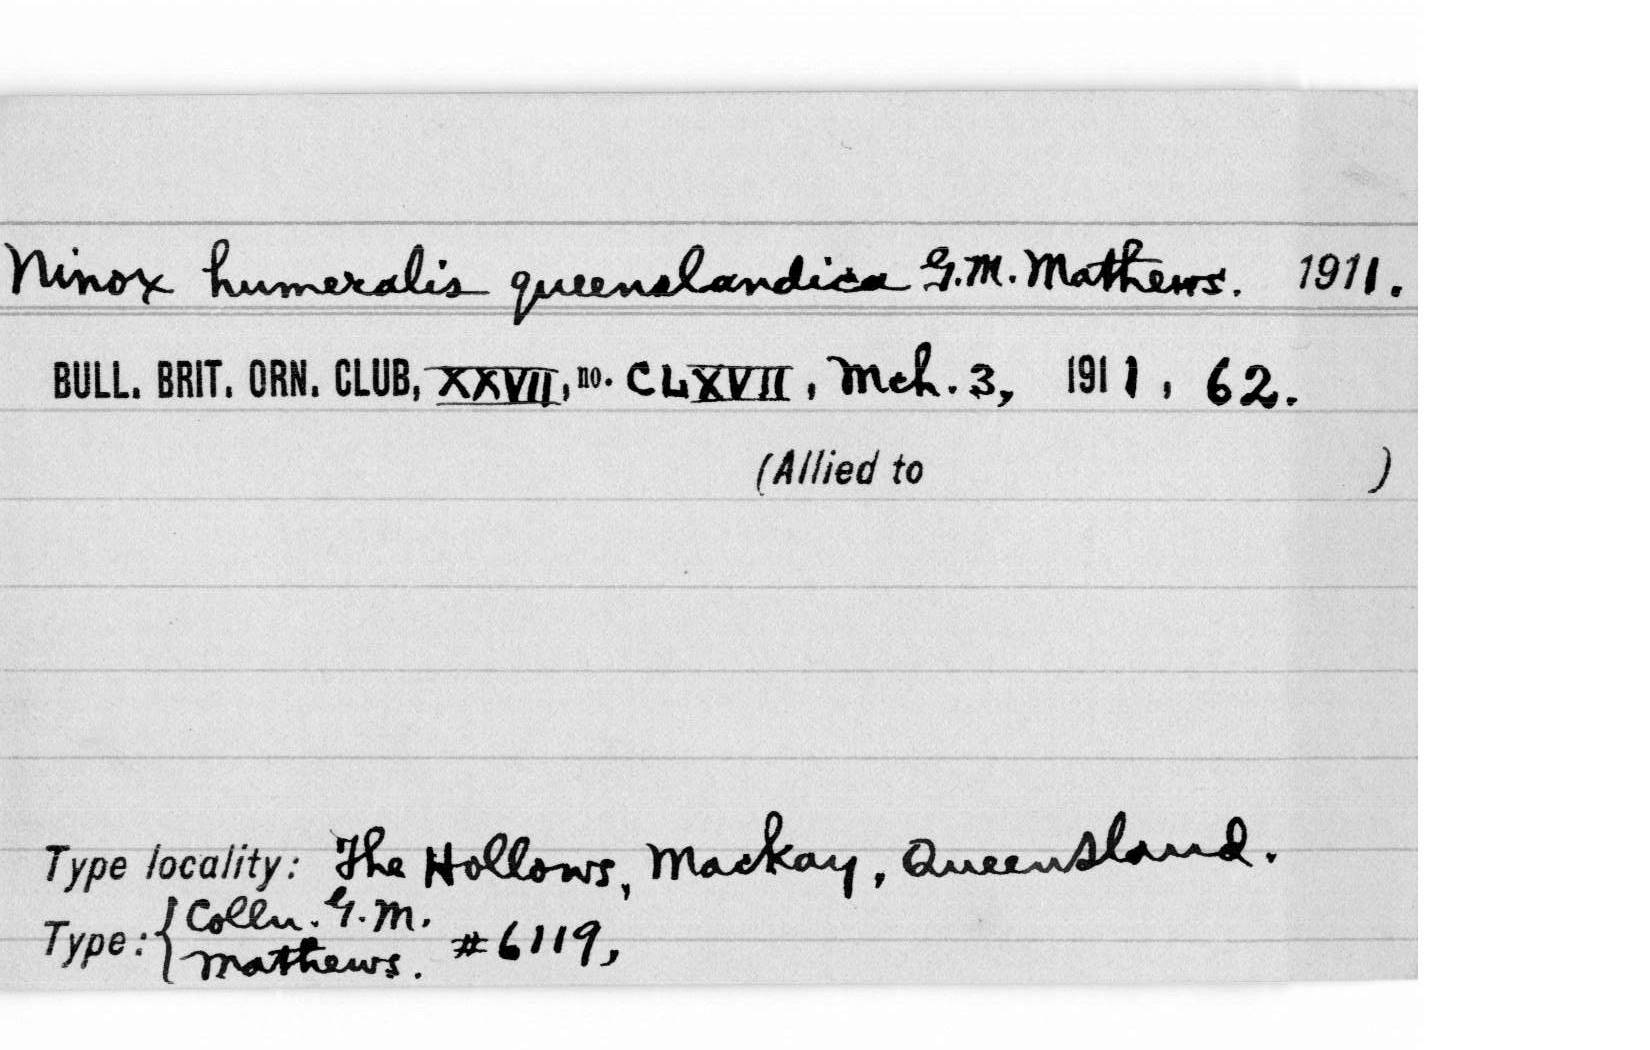 Ninox humeralis queenslandica G.M. Mathews. 1911.
BULL. BRIT. ORN. CLUB, XXVII, no. CLXVII, Mch. 3, 1911, 62.
(Allied to )
Type locality: The Hollows, Mackay, Queensland.
Type: { Colln. G.M. Mathews. #6119,